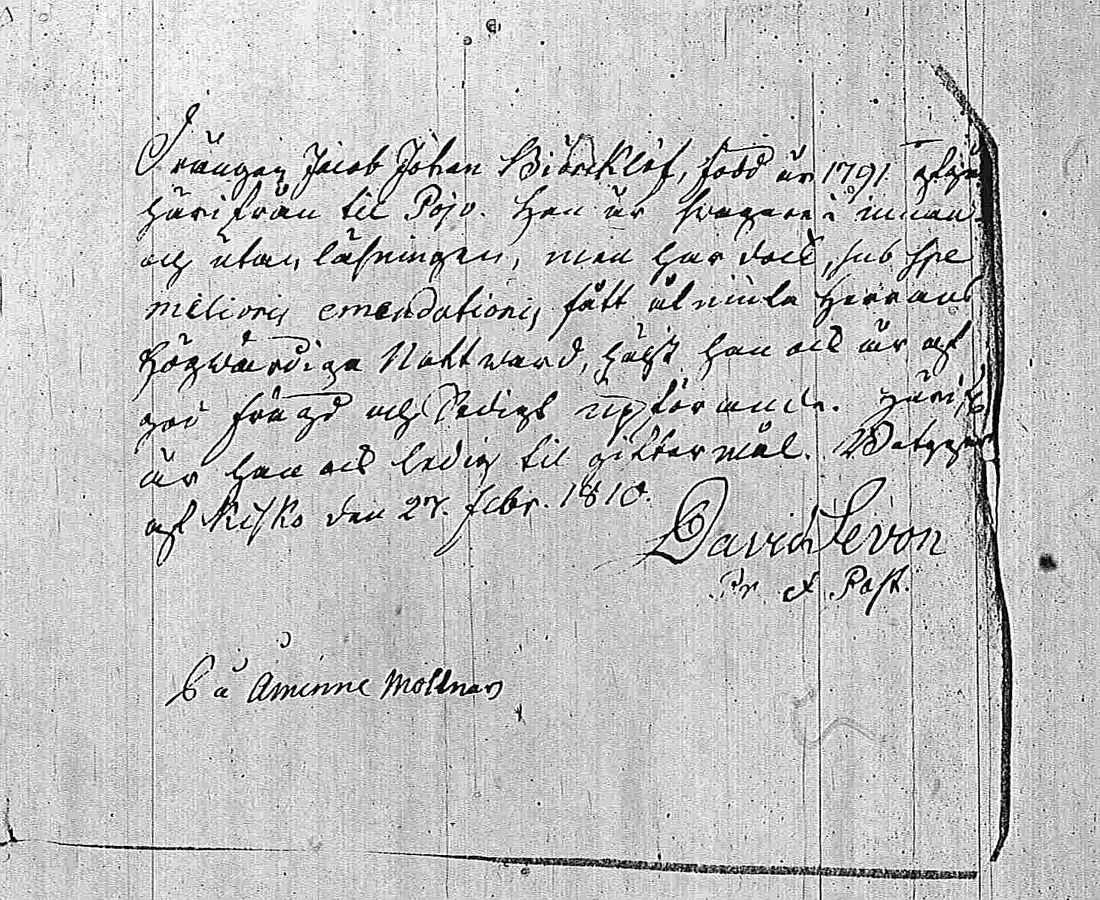 Drängen Jacob Johan Biörcklöf, född år 1791 afgår
härifrån til Pojo. Han är svagare i innan
och utan läsningen, men har dock, sub spe
melioris emendationis fått åtniuta Herrans
Högwärdiga Nattward, hälst han ock är af
god frägd och sedigt upförande. Härifr.
är han ock ledig til giftermål.
af Kisko den 27. Febr. 1810.
David Levon
Pr. & Past.
å Åminne